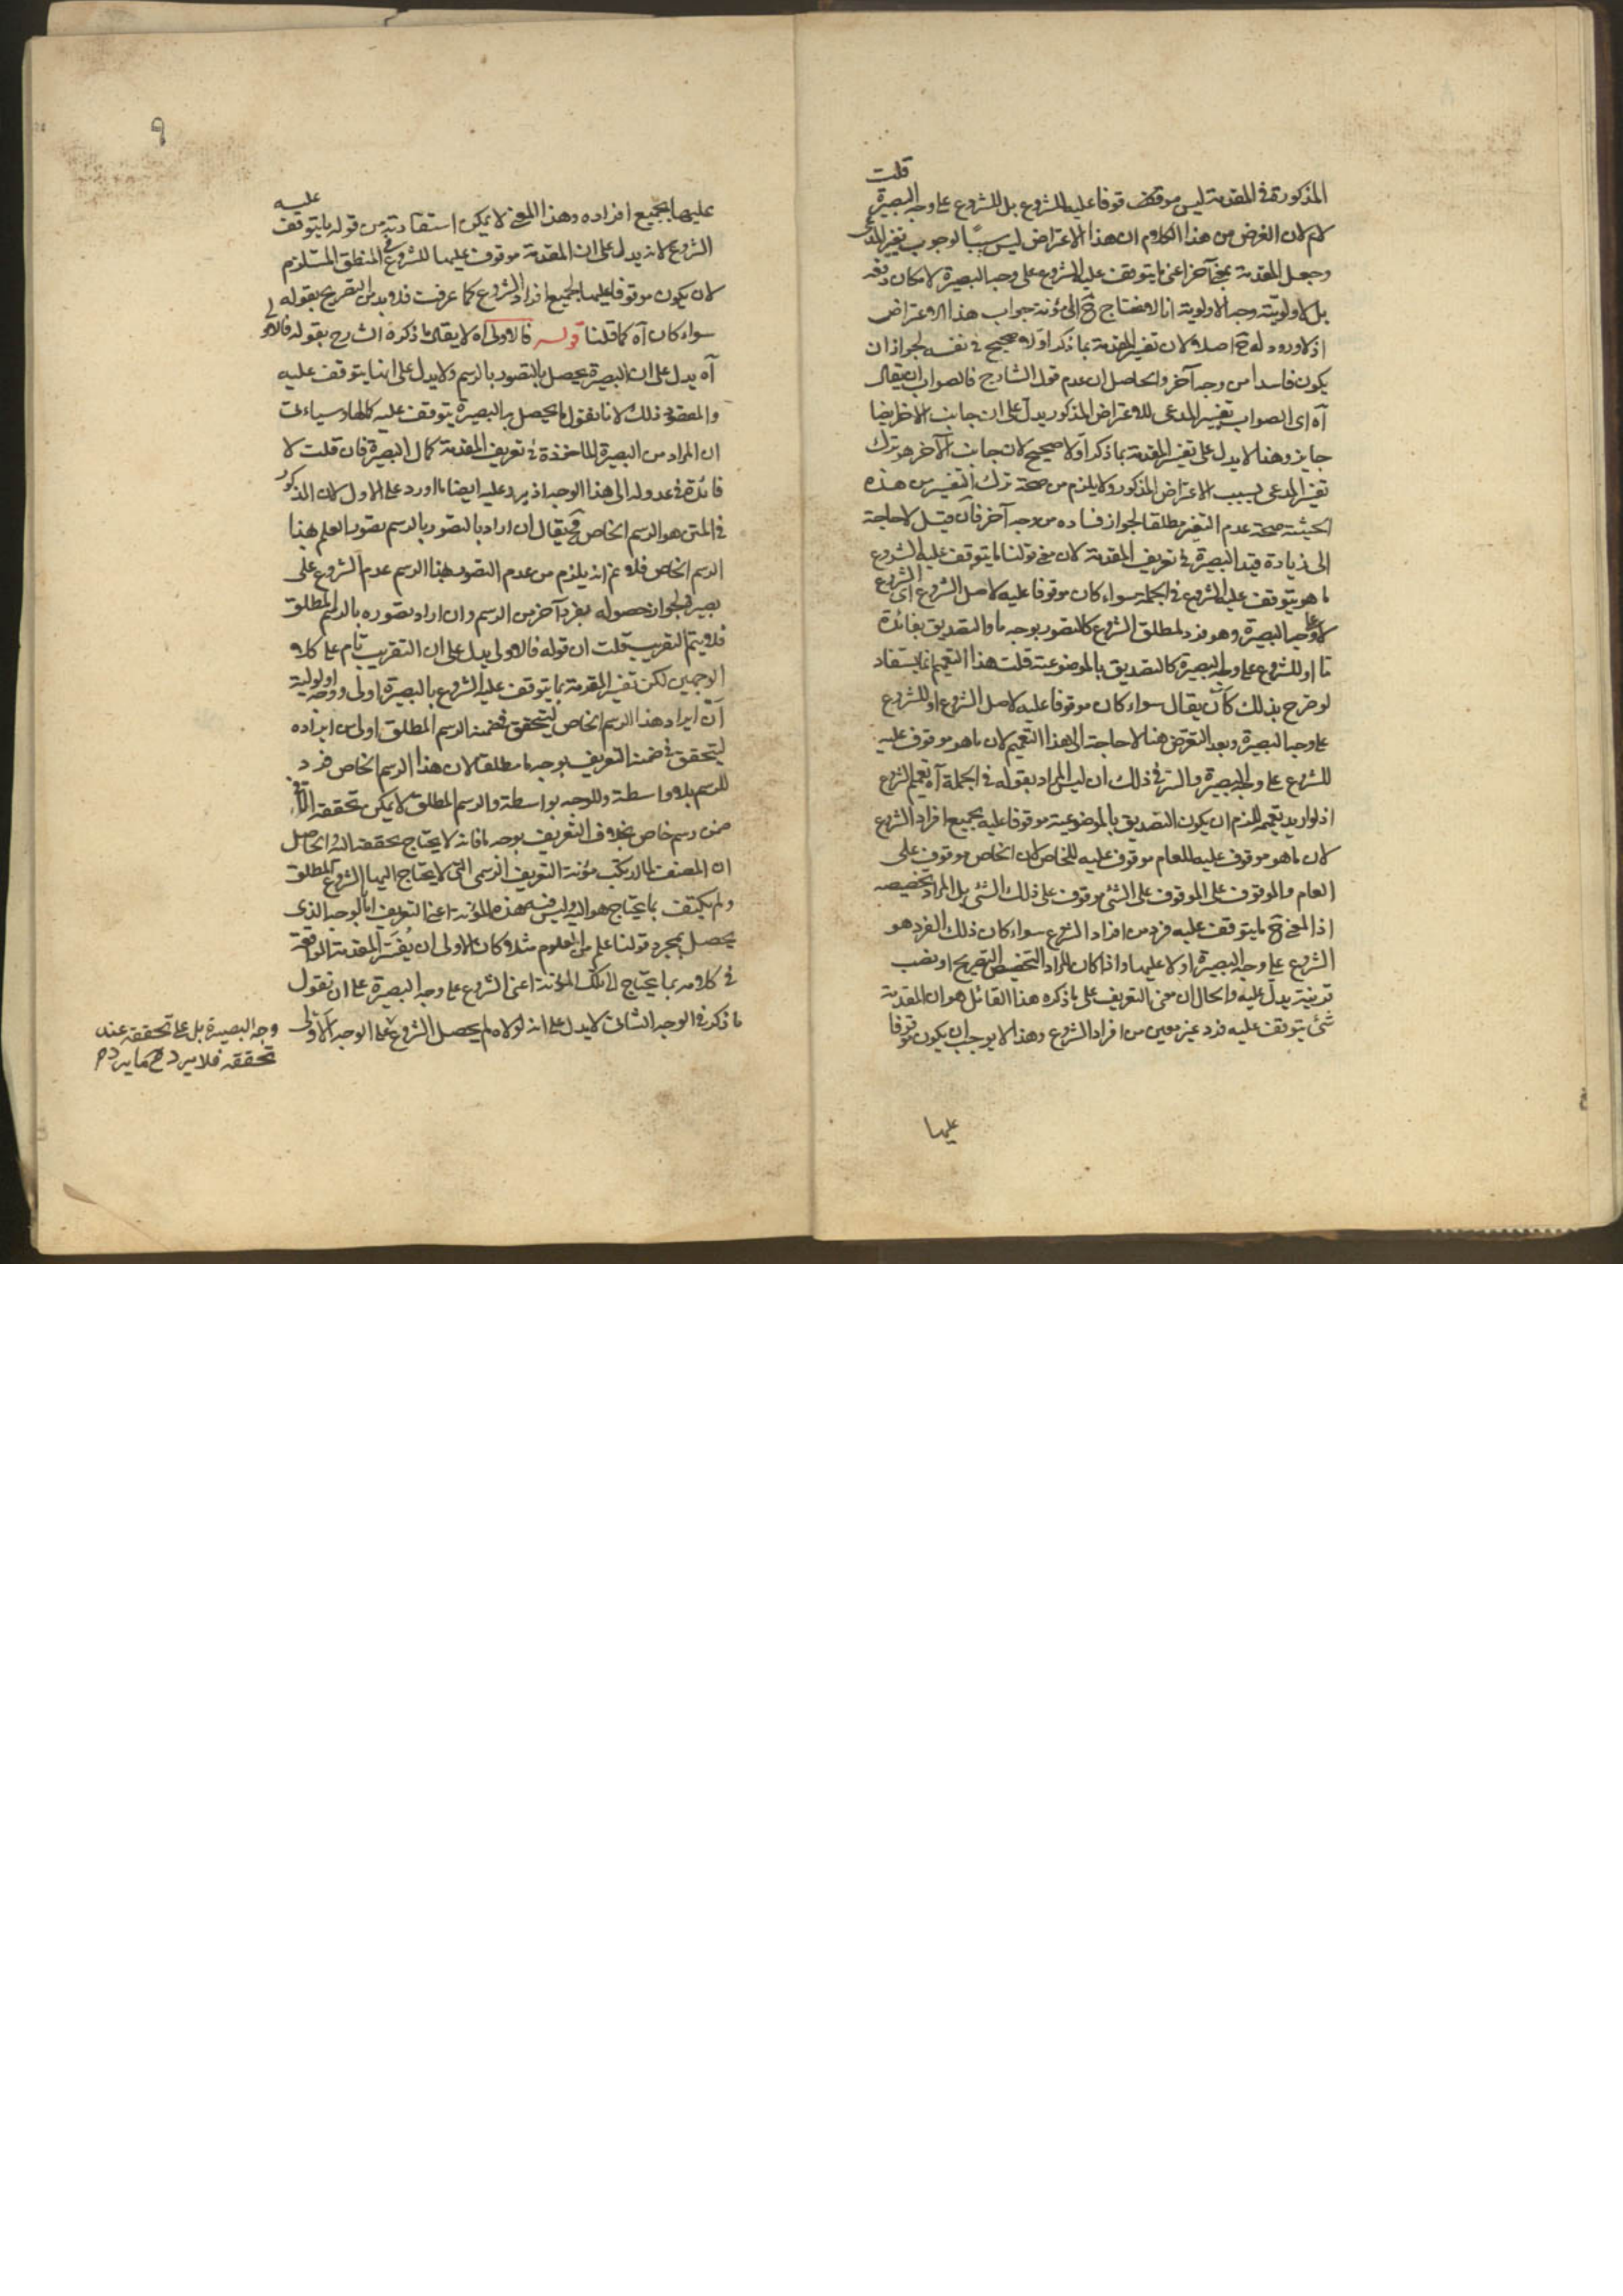 قلت
المذكورة في المقدمة ليس موقوفا عليه للشروع بل للشروع على وجه البصيرة
لان الغرض من هذا الكلام ان هذا الاعتراض ليس سببا لوجوب تغير المدعى
وجعل المقدمة بمعنى آخر اعني ما يتوقف عليه الشروع على وجه البصيرة لامكان دفعه
بل لاولويته وجه الاولوية انا لا نحتاج ح الى مؤنة جواب هذا الاعتراض
اذ لا ورود له ح اصلا لان تفسير المقدمة بما ذكر اولا صحيح في نفسه لجواز ان
يكون فاسدا من وجه آخر والحاصل ان عدم قول الشارح فالصواب ان يقال
آه اي الصواب تغيير المدعى للاعتراض المذكور يدل على ان جانب الآخر ايضا
جايز وهنا لا يدل على تفسير المقدمة بما ذكر اولا صحيح لان جانب الآخر هو ترك
تغير المدعى بسبب الاعتراض المذكور ولا يلزم من صحة ترك التغير من هذه
الحيثية صحة عدم التغير مطلقا لجواز فساده من وجه آخر فان قيل لا حاجة
الى زيادة قيد البصيرة في تعريف المقدمة لان معنى قولنا ما يتوقف عليه الشروع
ما هو يتوقف عليه الشروع في الجملة سواء كان موقوفا عليه لاصل الشروع اي الشروع
لا على وجه البصيرة وهو فرد لمطلق الشروع كالتصور بوجه ما والتصديق بفائدة
ما او للشروع على وجه البصيرة كالتصديق بالموضوعية قلت هذا التعميم انما يستفاد
لو صرح بذلك كأن يقال سواء كان موقوفا عليه لاصل الشروع او للشروع
على وجه البصيرة وبعد التعرض هنا لا حاجة الى هذا التعميم لان ما هو موقوف عليه
للشروع على وجه البصيرة والسر في ذلك ان ليس المراد بقوله في الجملة آه تعميم الشروع
اذ لو اريد تعميمه للزم ان يكون التصديق بالموضوعية موقوفا عليه بجميع افراد الشروع
لان ما هو موقوف عليه للعام موقوف عليه للخاص لان الخاص موقوف على
العام والموقوف على الموقوف على الشئ موقوف على ذلك الشئ بل المراد تخصيصه
اذ المعنى ح ما يتوقف عليه فرد من افراد الشروع سواء كان ذلك الفرد هو
الشروع على وجه البصيرة او لا عليها واذا كان المراد التخصيص التصريح او نصب
قرينة يدل عليه والحال ان معنى التعريف على ما ذكره هذا القائل هو ان المقدمة
شئ يتوقف عليه فرد غير معين من افراد الشروع وهذا لا يوجب ان يكون موقوفا
عليها
٩
عليها بجميع افراده وهذا المعنى لا يمكن استفادته من قوله ما يتوقف عليه
الشروع لانه يدل على ان المقدمة موقوف عليها للشروع في المنطق المستلزم
لان يكون موقوفا عليها لجميع افراد الشروع كما عرفت فلا بد من التصريح بقوله
سواء كان آه كما قلنا قوله فالاولى آه لا يقال ما ذكره الشارح بقوله فالاولى
آه يدل على ان البصيرة يحصل بالتصور بالرسم ولا يدل على انها يتوقف عليه
والمقصود ذلك لانا نقول ما يحصل به البصيرة يتوقف عليه كمالها وسيأتي
ان المراد من البصيرة الماخوذة في تعريف المقدمة كمال البصيرة فان قلت لا
فائدة في عدوله الى هذا الوجه اذ يرد عليه ايضا ما اورد على الاول لان المذكور
في المتن هو الرسم الخاص فح يقال ان اراد بالتصور بالرسم تصور العلم بهذا
الرسم الخاص فلا نم انه يلزم من عدم التصور بهذا الرسم عدم الشروع على
بصيرة لجواز حصوله بفرد آخر من الرسم وان اراد تصوره بالرسم المطلق
فلا يتم التقريب قلت ان قوله فالاولى يدل على ان التقريب تام على كلا
الوجهين لكن تفسير المقدمة بما يتوقف عليه الشروع بالبصيرة اولى ووجه اولوية
ان ايراد هذا الرسم الخاص ليتحقق في ضمنه الرسم المطلق اولى من ايراده
ليتحقق في ضمنه التعريف بوجه ما مطلقا لان هذا الرسم الخاص فرد
للرسم بلا واسطة وللوجه بواسطة والرسم المطلق لا يمكن تحققه الا في
ضمن رسم خاص بخلاف التعريف بوجه ما فانه لا يحتاج تحققه اليه والحاصل
ان المصنف لما ارتكب مؤنة التعريف الرسمي التي لا يحتاج اليها الشروع المطلق
ولم يكتف بما يحتاج هو اليه وليس فيه هذه المؤنة اعني التعريف بالوجه الذي
يحصل بمجرد قولنا علم من العلوم مثلا كان الاولى ان يفسر المقدمة الواقعة
في كلامه بما يحتاج الى تلك المؤنة اعني الشروع على وجه البصيرة على ان نقول
ما ذكر في الوجه الثاني لا يدل على انه لولاه لم يحصل الشروع على الوجه الاولى
وجه البصيرة بل على تحققه عند
تحققه فلا يرد ح ما يرد